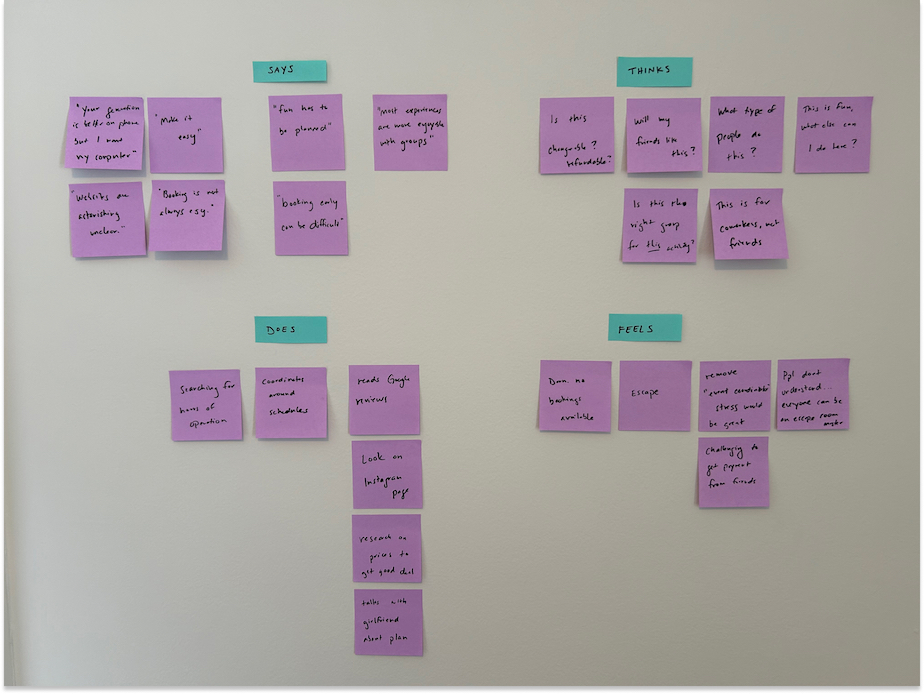 SAYS
"Your generation
is better on phone
but I need
my computer"
"Make it
easy"
"fun has to
be planned"
"most experiences
are more enjoyable
with groups"
"Websites are
astonishing
unclear."
"Booking is not
always esy."
"booking early
can be difficult"
THINKS
Is this
changeable?
refundable?
Will my
friends like
this?
What type of
people do
this?
This is fun,
what else can
I do here?
Is this the
right group
for this activity?
This is for
coworkers, not
friends
DOES
Searching for
hours of
operation
coordinates
around
schedules
reads Google
reviews
Look on
Instagram
page
research on
prices to
get good deal
talks with
girlfriend
about plan
FEELS
Damn. no
bookings
available
Escape
remove
"event coordinator"
stress would
be great
Ppl dont
understand...
everyone can be
an escape room
master
Challenging to
get payment
from friends